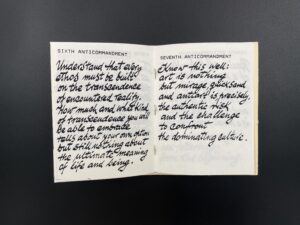 SIXTH ANTICOMMANDMENT
Understand that every
ethos must be built
on the transcendence
of encountered reality.
How much and what kind
of transcendence you will
be able to embrace
tells about your own option
but still nothing about
the ultimate meaning
of life and being.
SEVENTH ANTICOMMANDMENT
Know this well:
art is nothing
but mirage, quicksand
and authors is precisely,
the authentic risk
and the challenge
to confront
the dominating culture.